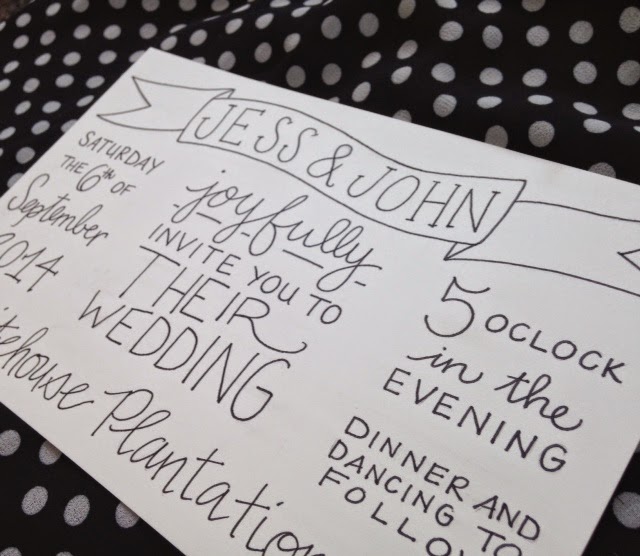 JESS & JOHN
SATURDAY
THE 6th OF
September
2014
joyfully
INVITE YOU TO
THEIR
WEDDING
5 OCLOCK
in the
EVENING
DINNER AND
DANCING TO
FOLLOW
Plantation